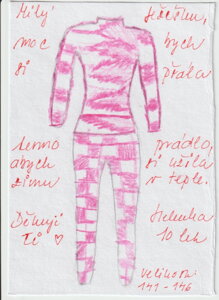 Milý Ježíšku,
moc bych
si přála
termo prádlo,
abych si užila
zimu v teple.
Děkuji Helenka
Ti ♡ 10 let
Velikost:
141 - 146